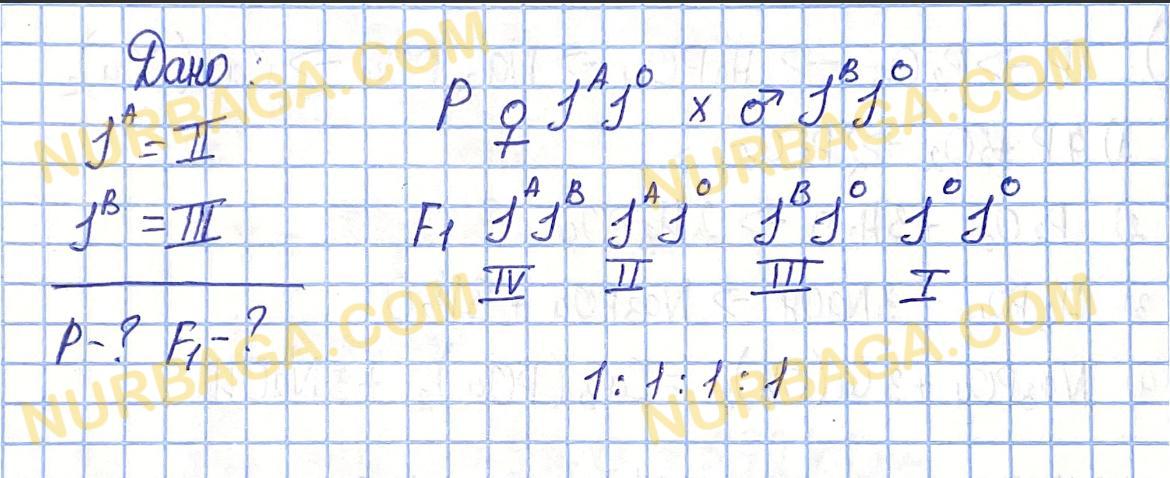 Дано:
J^A = II
J^B = III
P-? F₁-?
P ♀ J^A J^O x ♂ J^B J^O
F₁ J^A J^B J^A J^O J^B J^O J^O J^O
IV II III I
1:1:1:1
NURBAGA.COM
NURBAGA.COM
NURBAGA.COM
NURBAGA.COM